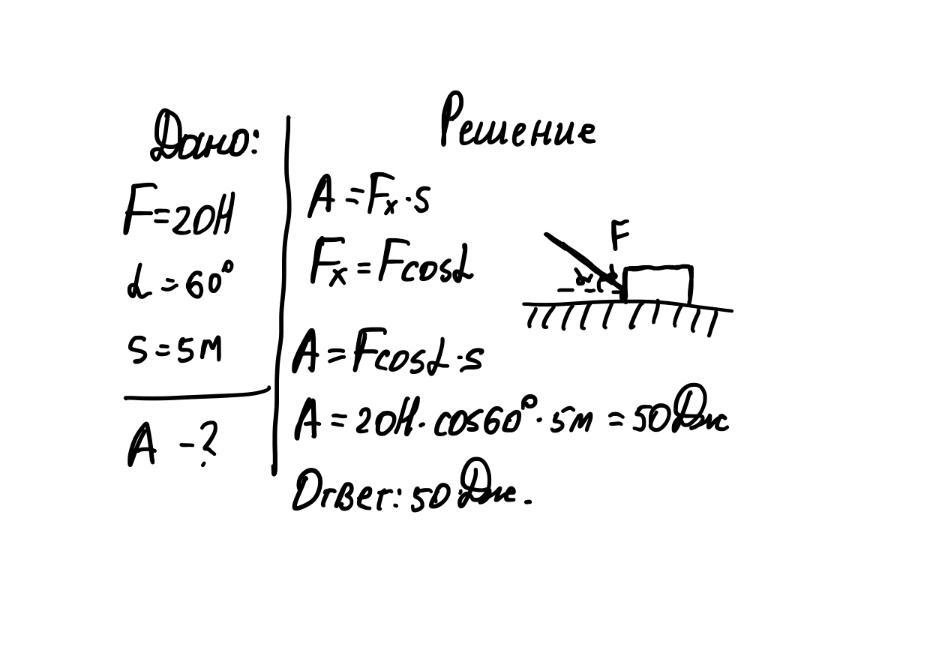 Дано:
F=20Н
α=60°
S=5м
A -?
Решение
A=Fₓ·s
Fₓ=Fcosα
A=Fcosα·s
A=20Н·cos60°·5м=50Дж
Ответ: 50 Дж.
F
α